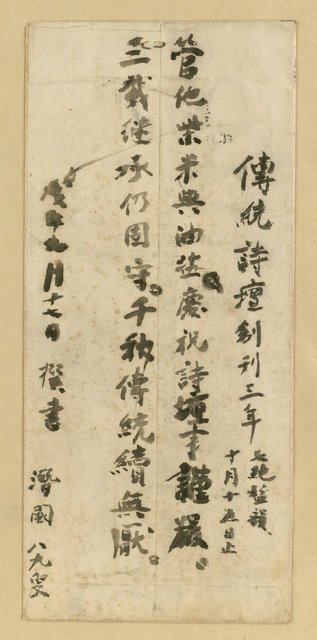 傳統詩壇創刊三年 七絕鹽韻
十月十五日止
管他柴米與油鹽。慶祝詩壇事謹嚴。
三載繼承仍固守。千秋傳統續無厭。
九月十七日 撰書
潛園 八九叟